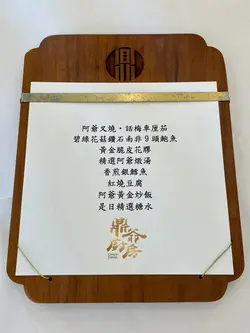 鼎
阿爺叉燒·話梅車厘茄
碧綠花菇鑽石南非9頭鮑魚
黃金脆皮花膠
精選阿爺燉湯
香煎銀鱈魚
紅燒豆腐
阿爺黃金炒飯
是日精選糖水
鼎爺廚房